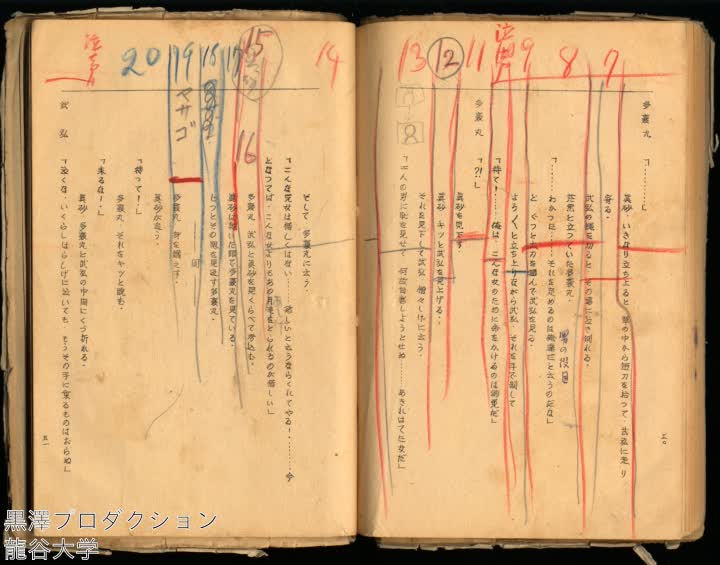 7
8
9
11
12
13
多襄丸「………」
真砂、いきなり立ち上ると、草の中から短刀を拾って、武弘に走り
寄る。
武弘の縄を切ると、その場に泣き倒れる。
茫然と立っていた多襄丸。
「わかった……それを定めるのは俺達だと云うのだな」
男の役目
と、ぐっと太刀を掴んで武弘を見る。
よろ／＼と立ち上りながら武弘、それを手で制して
「待て!……俺は、こんな女のために命をかけるのは御免だ」
多襄丸「?!」
真砂を見下す。
真砂、キッと武弘を見上げる。
それを見下して武弘、憎々しげに云う。
「二人の男に恥を見せて、何故自害しようとせぬ……あきれはてた女だ」
五〇
14
15
16
17
18
19
20
マサゴ
そして、多襄丸に云う。
「こんな売女は惜しくはない……欲しいと云うならくれてやる!……今
となっては、こんな女よりもあの月毛をとられるのが惜しい」
多襄丸、武弘と真砂を見くらべて考え込む。
真砂は乾いた顔で多襄丸を見ている。
じっとその顔を見返す多襄丸。
多襄丸、身を翻えす。
真砂が追う。
「待って!」
多襄丸、それをキッと睨む。
「来るな!」
真砂、多襄丸と武弘の中間にくづ折れる。
武弘「泣くな、いくらしほらしげに泣いても、もうその手に乗るものはおらぬ」
五一
黒澤プロダクション
龍谷大学